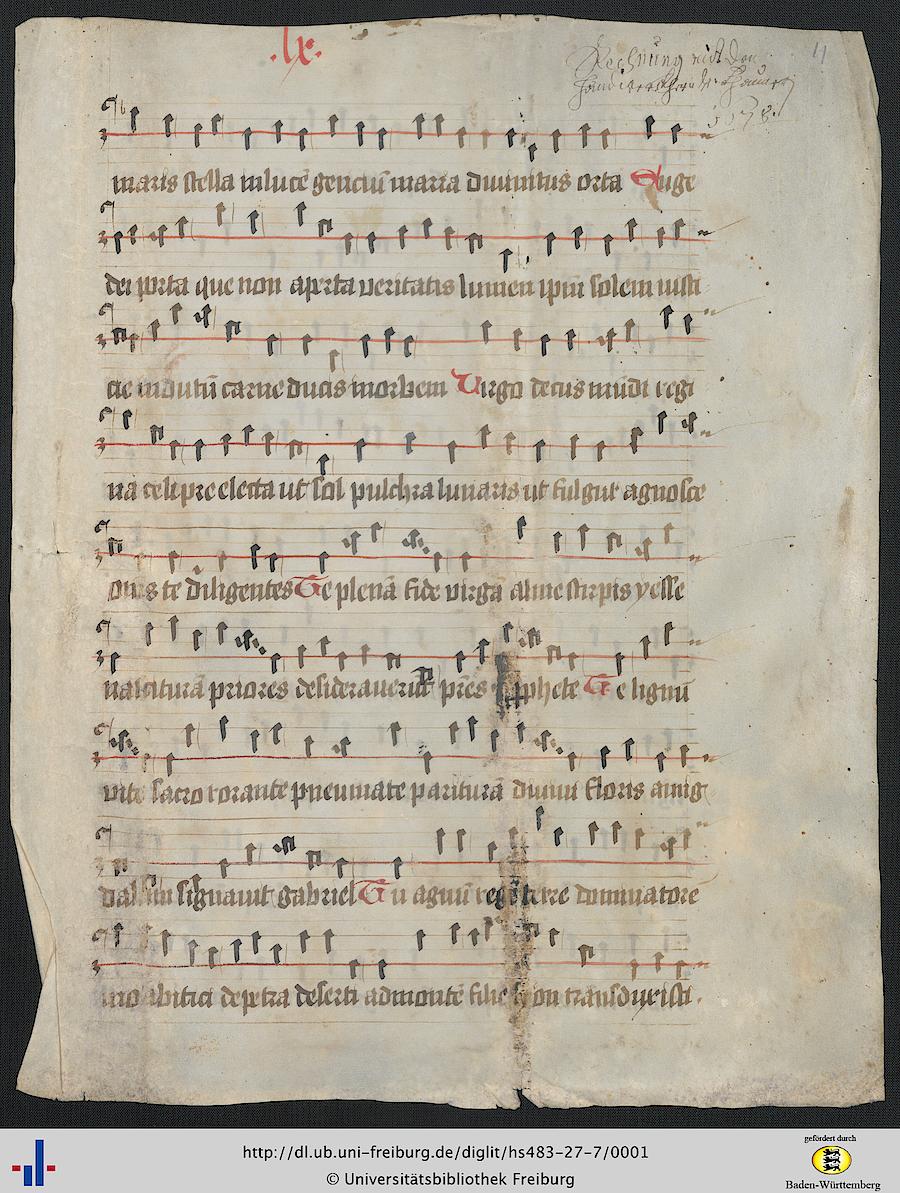 .lx.
Rechnung mit den
4
maris stella in lucē genciū maria diuinitus orta Euge
dei porta que non aperta veritatis lumen ipm̄ solem iusti
cie indutū carne ducis in orbem Virgo decus mūdi regi
na celi pre electa ut sol pulchra lunaris ut fulgur agnosce
om̄s te diligentes Te plenā fide virgā alme stirpis yesse
nasciturā priores desiderauerūt pr̄es pphete Te lignū
vite sacro rorante pneumate pariturā diuini floris amig
dalum signauit gabriel Tu agnū regē terre dominatorē
moabitici de petra deserti ad montē filie syon transduxisti.
http://dl.ub.uni-freiburg.de/diglit/hs483-27-7/0001
© Universitätsbibliothek Freiburg
gefördert durch
Baden-Württemberg